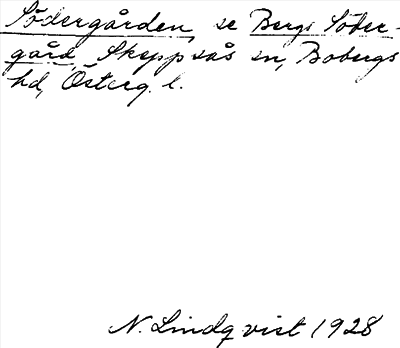 Södergården, se Bergs Söder-
gård, Skeppsås sn, Bobergs
hd, Österg. l.
N. Lindqvist 1928